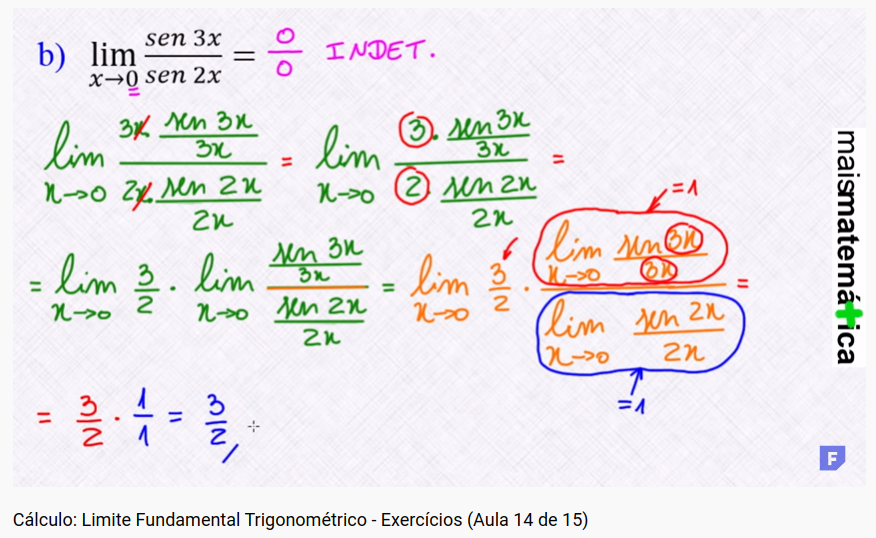 b) lim x→0 sen 3x / sen 2x = 0/0 INDET.
lim x→0 (3x · sen 3x / 3x) / (2x · sen 2x / 2x) = lim x→0 (3 · sen 3x / 3x) / (2 · sen 2x / 2x) =
=1
= lim x→0 3/2 · lim x→0 (sen 3x / 3x) / (sen 2x / 2x) = lim x→0 3/2 · (lim x→0 sen 3x / 3x) / (lim x→0 sen 2x / 2x) =
=1
= 3/2 · 1/1 = 3/2
maismatemática
F
Cálculo: Limite Fundamental Trigonométrico - Exercícios (Aula 14 de 15)